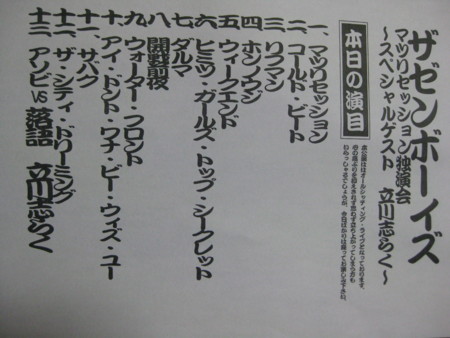 ザゼンボーイズ
マツリセッション独演会
～スペシャルゲスト 立川志らく～
本日の演目
一、マツリセッション
二、コールド・ビート
三、リフマン
四、ホンノウジ
五、ウィークエンド
六、ヒミツ・ガールズ・トップ・シークレット
七、ダルマ
八、開戦前夜
九、ウォーター・フロント
十、アイ・ドント・ワナ・ビー・ウィズ・ユー
十一、サバク
十二、ザ・シティ・ドリーミング
十三、アソビ VS 落語 立川志らく